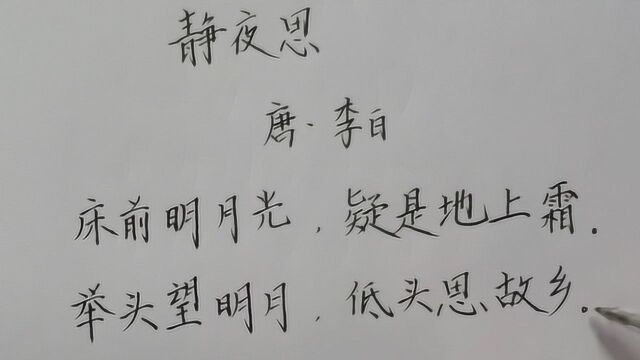 静夜思
唐·李白
床前明月光，疑是地上霜.
举头望明月，低头思故乡。